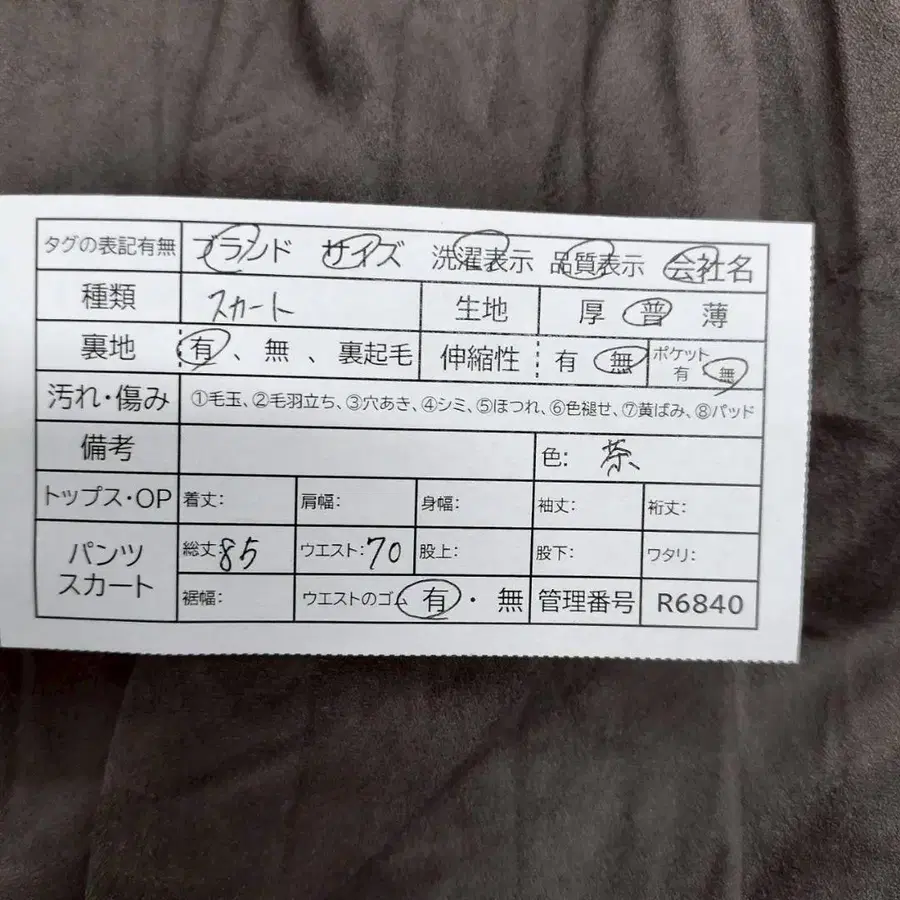 タグの表記有無 ブランド サイズ 洗濯表示 品質表示 会社名
種類 スカート 生地 厚 普 薄
裏地 有、無、裏起毛 伸縮性 有 無 ポケット 有 無
汚れ・傷み ①毛玉、②毛羽立ち、③穴あき、④シミ、⑤ほつれ、⑥色褪せ、⑦黄ばみ、⑧パッド
備考 色: 茶
トップス・OP 着丈: 肩幅: 身幅: 袖丈: 裄丈:
パンツ スカート 総丈:85 ウエスト:70 股上: 股下: ワタリ:
裾幅: ウエストのゴム 有・無 管理番号 R6840